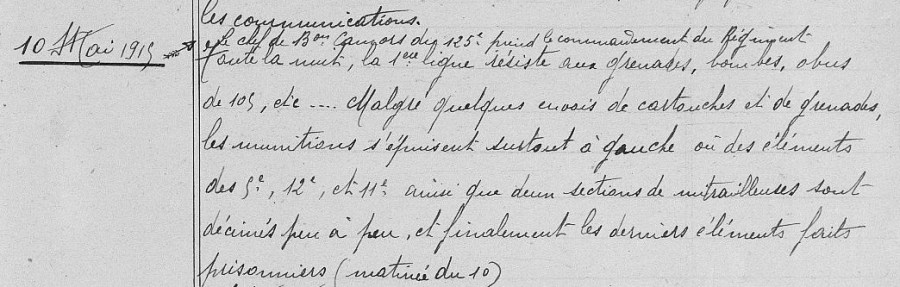 les communications.
10 Mai 1915
Le chef de Bon Cauvors du 125e prend le commandement du Régiment
Toute la nuit, la 1ère ligne résiste aux grenades, bombes, obus
de 105, etc .... Malgré quelques envois de cartouches et de grenades,
les munitions s'épuisent surtout à gauche où des éléments
des 9e, 12e, et 11e ainsi que deux sections de mitrailleuses sont
décimés peu à peu, et finalement les derniers éléments faits
prisonniers (matinée du 10)